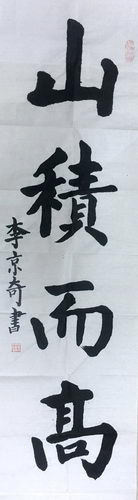 山積而高
李京奇書